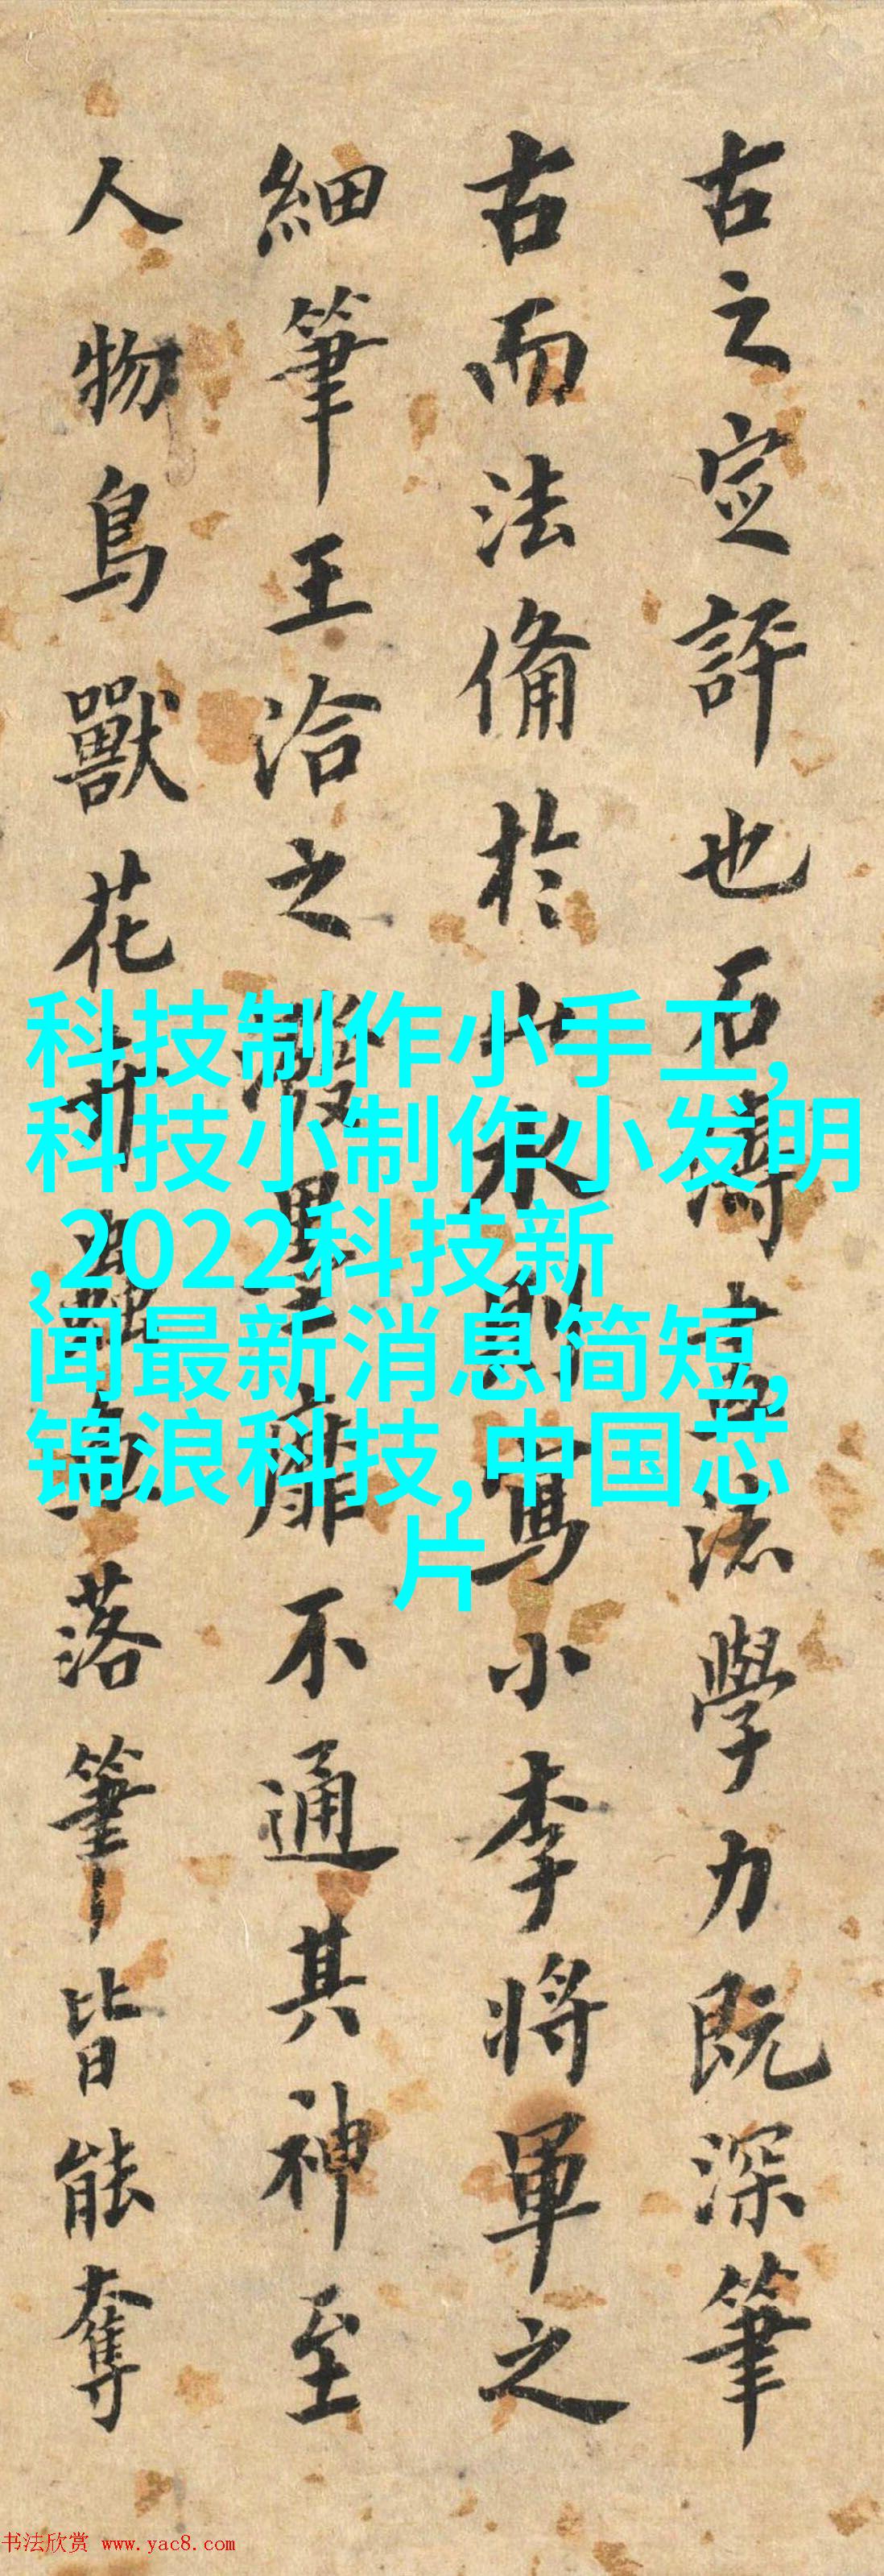 古之定評也石濤書畫法學力既深筆
古而法備於山水則寫小李將軍之
細筆王洽之潑墨靡不通其神至
人物鳥獸花卉蟲魚落筆皆能奪
科技制作小手工,
科技小制作小发明
,2022科技新
闻最新消息简短,
锦浪科技,中国芯
片
书法欣赏 www.yac8.com